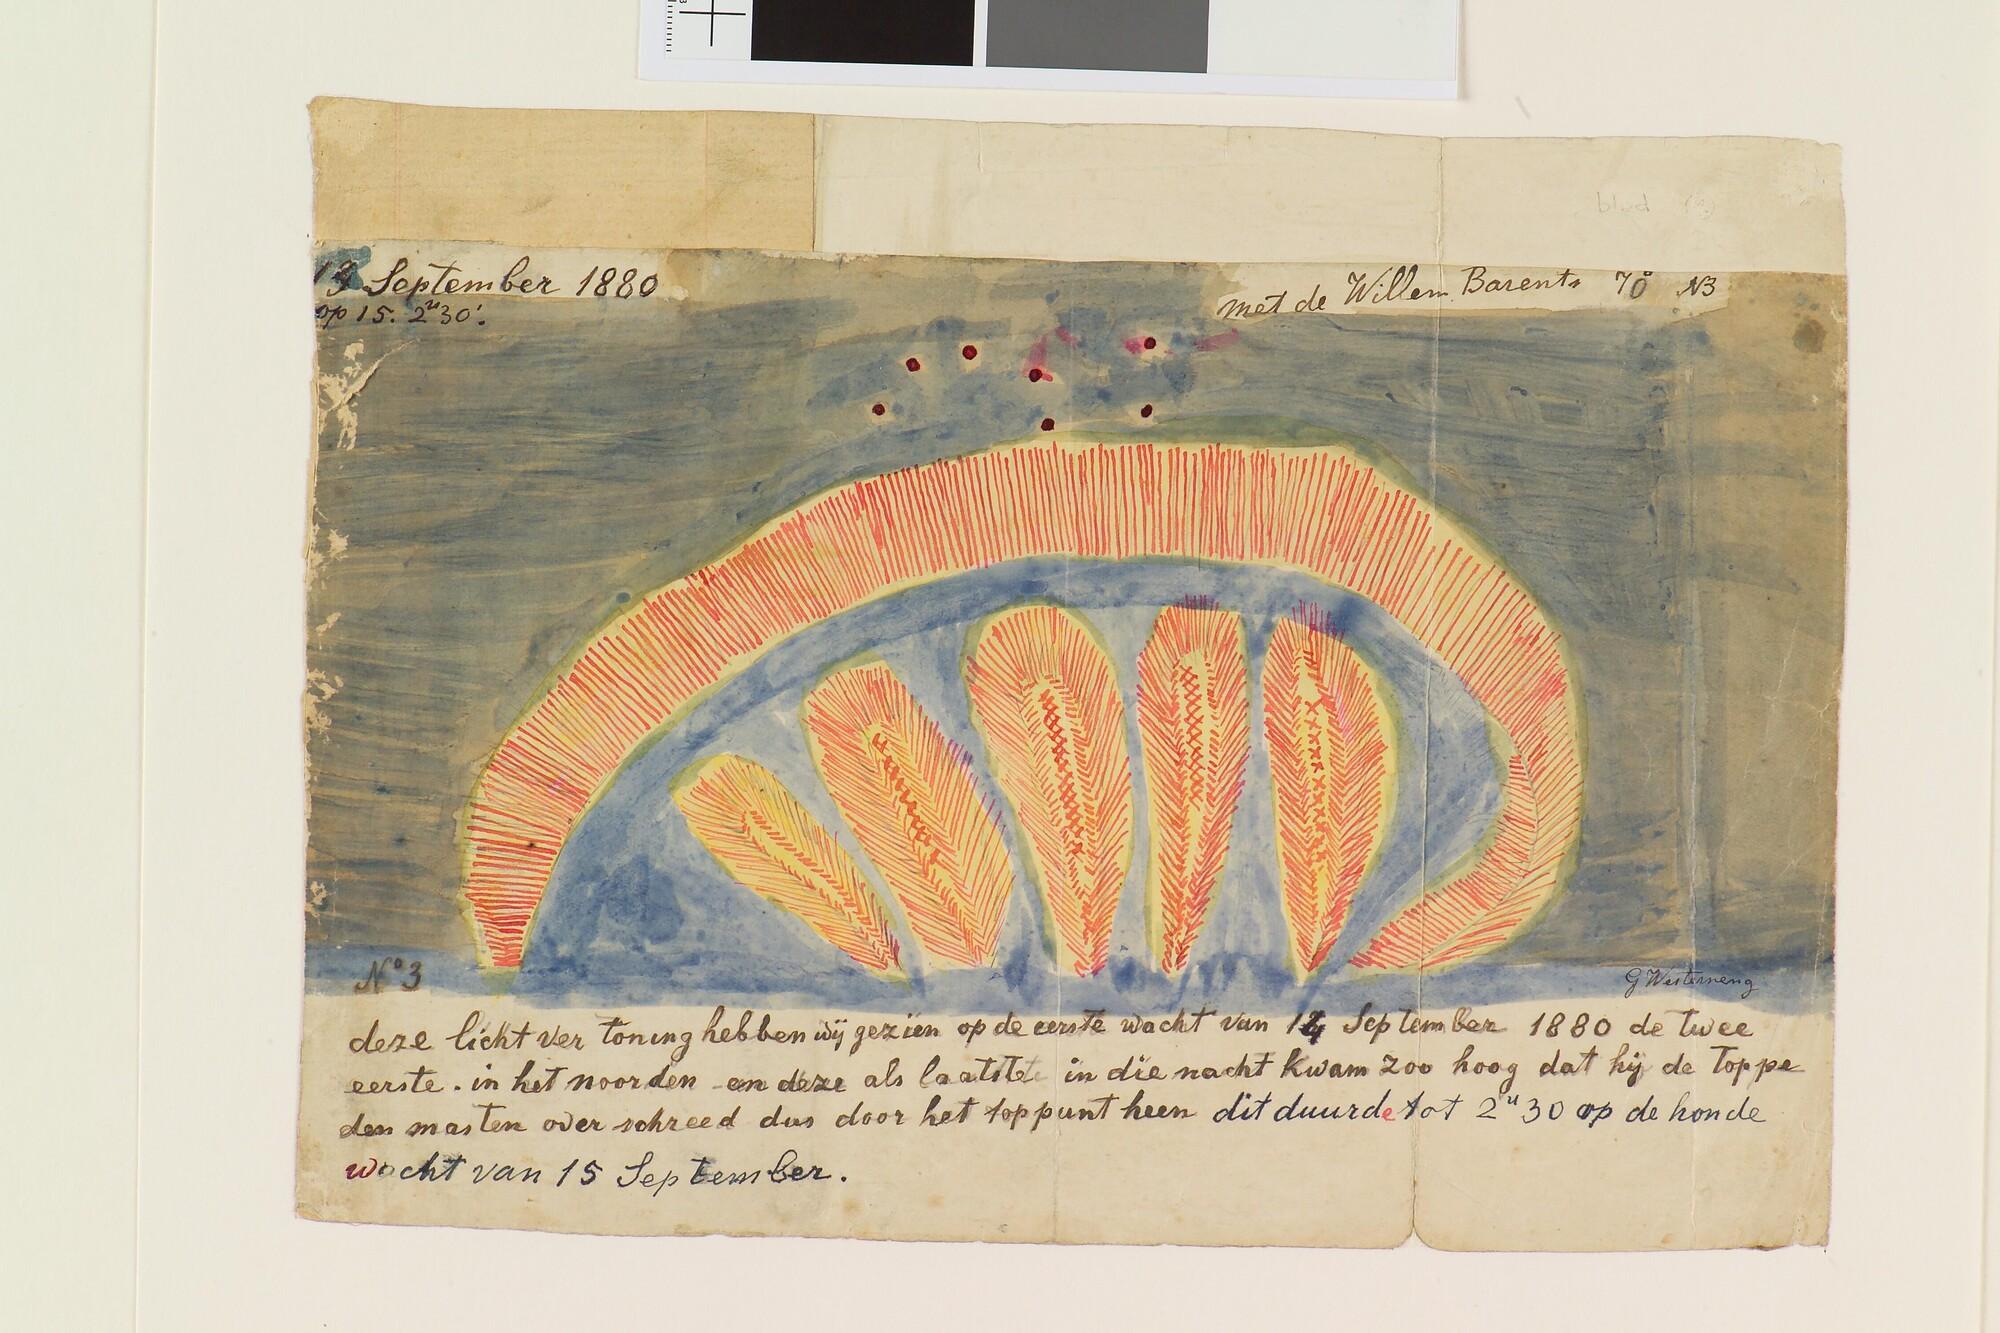 14 September 1880
op 15. 2u30'.
met de Willem Barents 70° NB
No 3
G Westerneng
deze licht ver toning hebben wij gezien op de eerste wacht van 14 September 1880 de twee
eerste. in het noorden en deze als laatste in die nacht kwam zoo hoog dat hij de toppe
den masten over schreed dus door het toppunt heen dit duurde tot 2u 30 op de honde
wacht van 15 September.